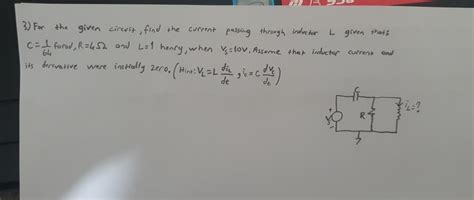 3) For the given circuit, find the current passing through inductor L given that:
C=1/64 farad, R=4Ω and L=1 henry, when Vs=10V. Assume that inductor current and
its derivative were initially zero. (Hint: VL = L diL/dt, ic = C dVc/dt)
C
iL=?
R
Vs
+
-